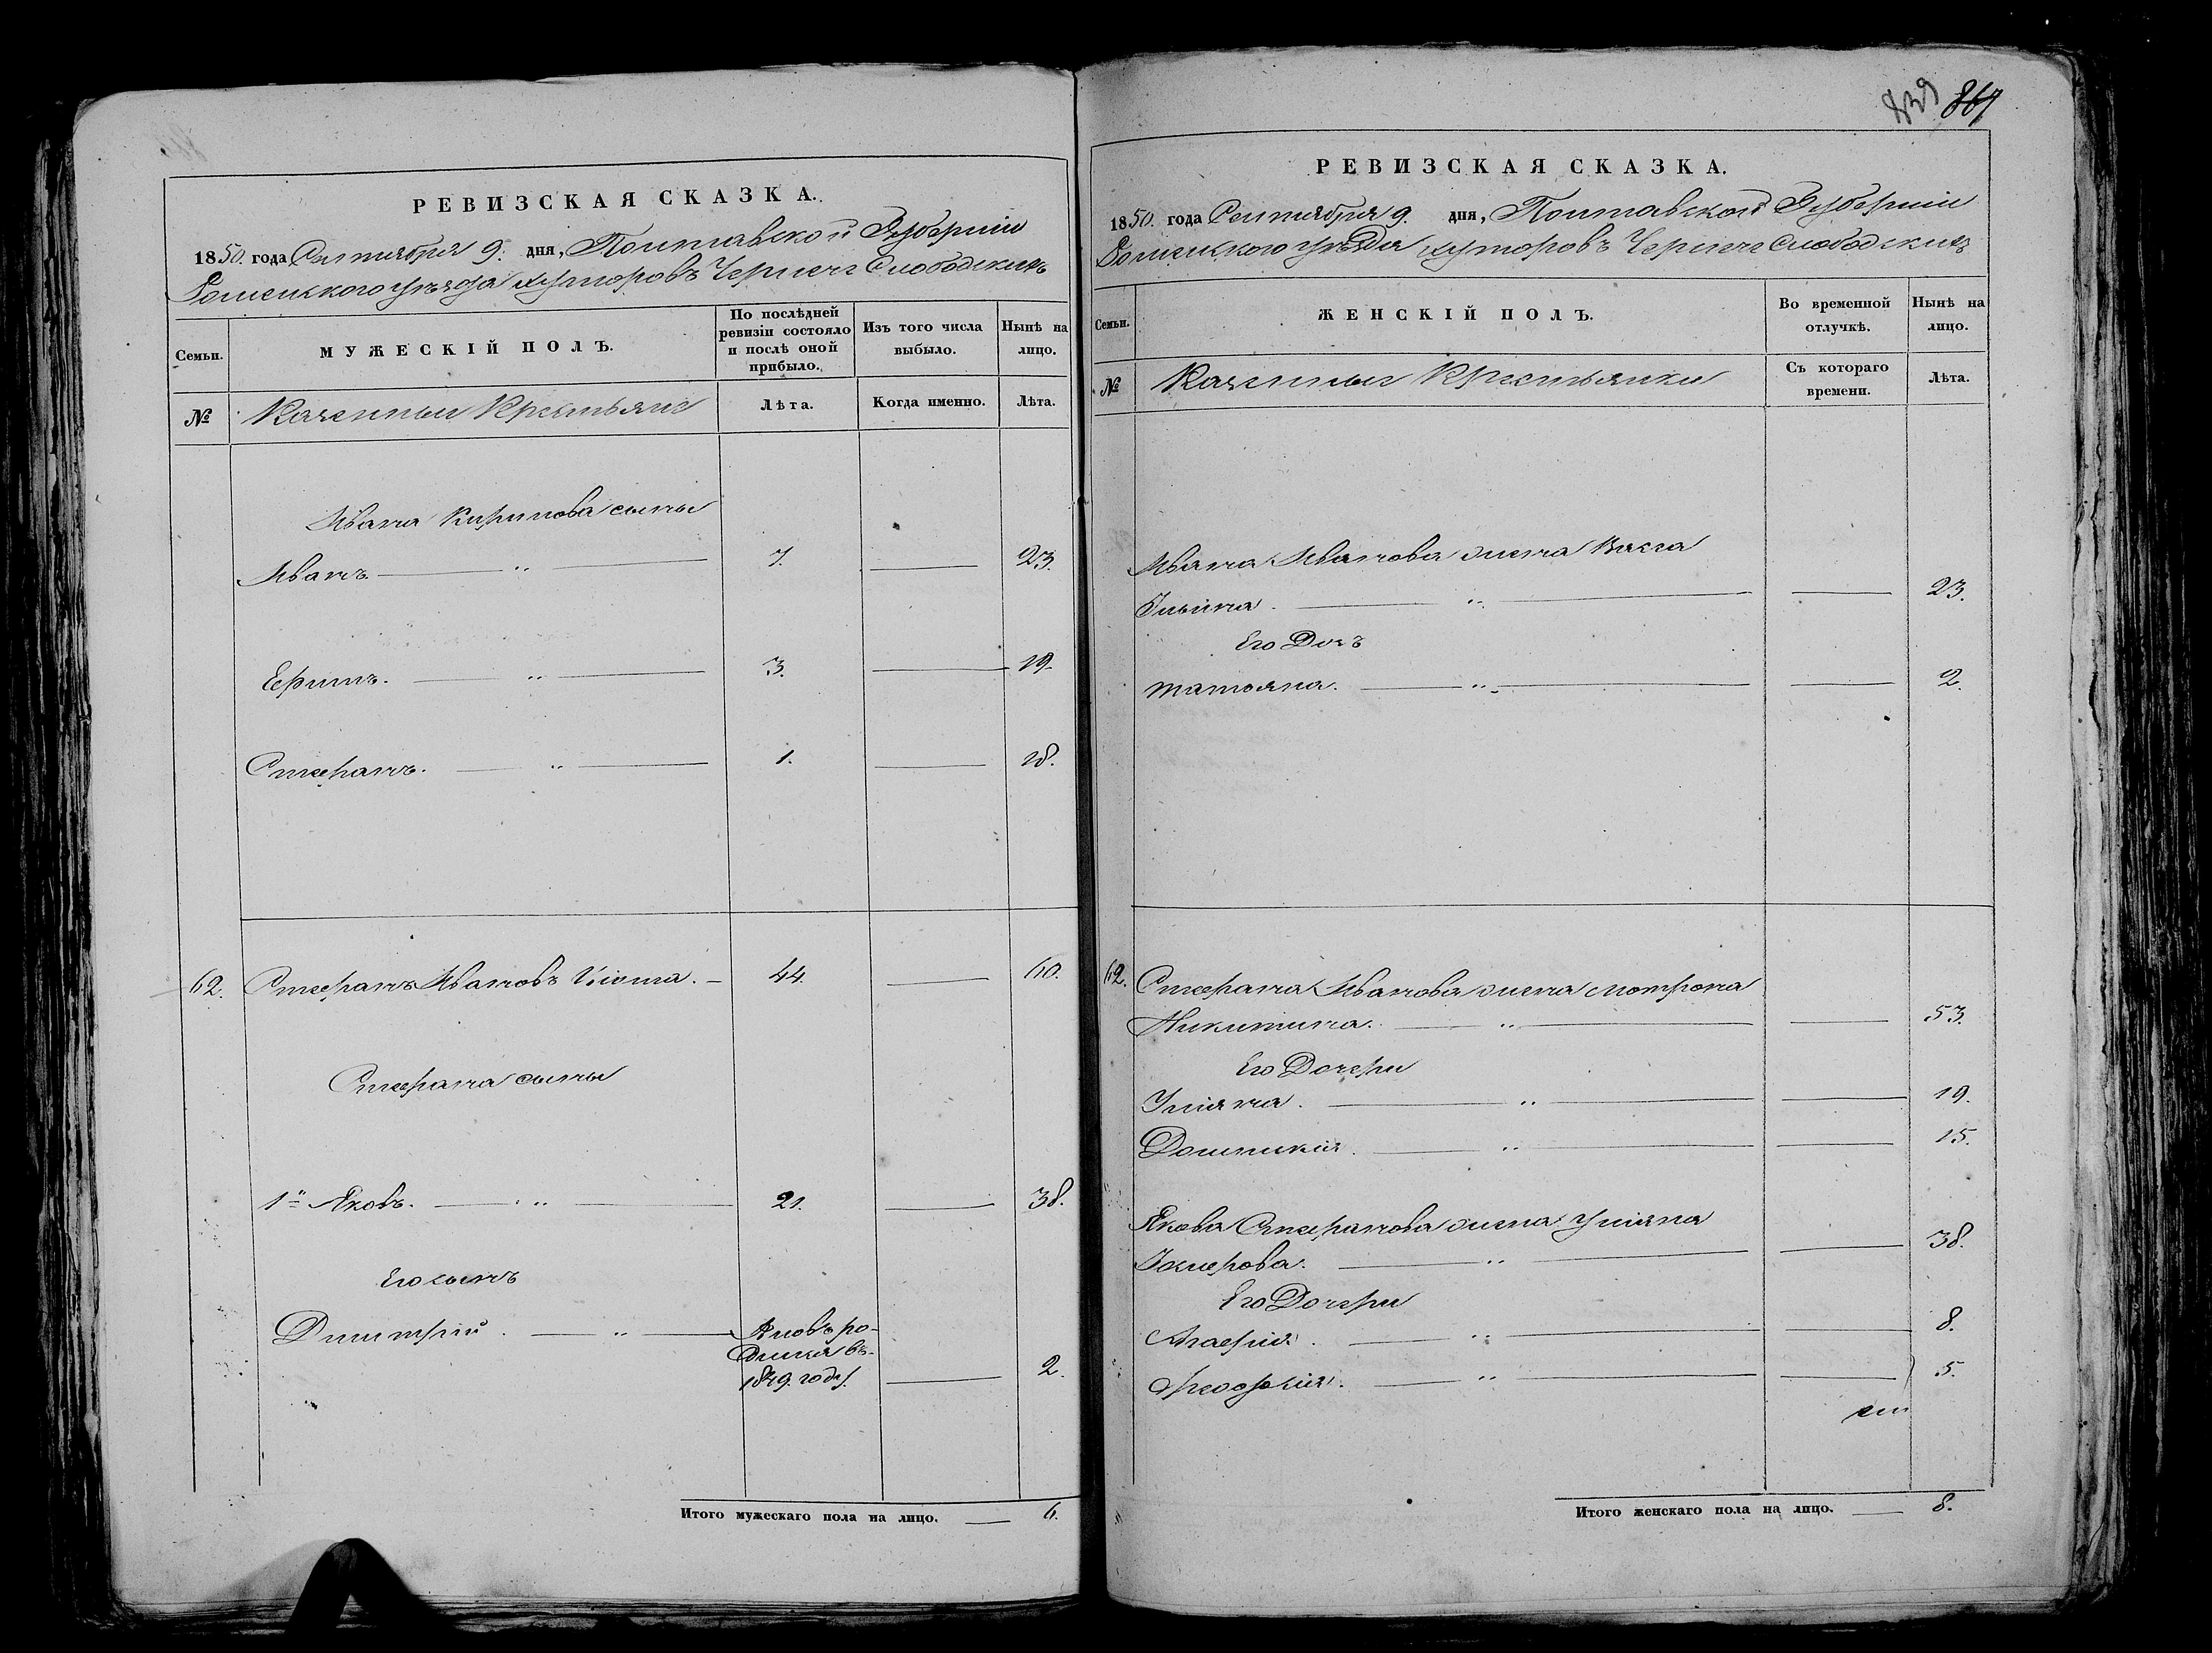 РЕВИЗСКАЯ СКАЗКА.
1850. года Сентября 9. дня, Полтавской Губернии
Роменского уезда хуторовъ Чернече Слободскихъ
Семьи.
МУЖЕСКІЙ ПОЛЪ.
По послѣдней
ревизіи состояло
и послѣ оной
прибыло.
Изъ того числа
выбыло.
Нынѣ на
лицо.
№
Казенные Крестьяне
Лѣта.
Когда именно.
Лѣта.
Ивана Кирилова сыны
Иванъ. 7. 23.
Ефимъ. 3. 19.
Стефанъ. 1. 18.
62. Стефанъ Ивановъ 44. 60.
Стефана сыны
1й Яковъ. 21. 38.
Его сынъ
Димитрій. Яковъ ро-
дился въ
1849. году. 2.
Итого мужескаго пола на лицо. 6.
839 867
РЕВИЗСКАЯ СКАЗКА.
1850. года Сентября 9. дня, Полтавской Губерніи
Роменского уѣзда хуторовъ Чернече Слободскихъ
Семьи.
ЖЕНСКІЙ ПОЛЪ.
Во временной
отлучкѣ.
Нынѣ на
лицо.
№
Казенные Крестьянки
Съ котораго
времени.
Лѣта.
Ивана Иванова жена Васса
Ильина. 23.
Его Дочъ
Татьяна. 2.
62. Стефана Иванова жена Мотрона
Никитина. 53.
Его Дочери
Уліяна. 19.
Домникія. 15.
Якова Стефанова жена Уліяна
38.
Его Дочери
Агафія. 8.
Феодосія. 5.
Итого женскаго пола на лицо. 8.